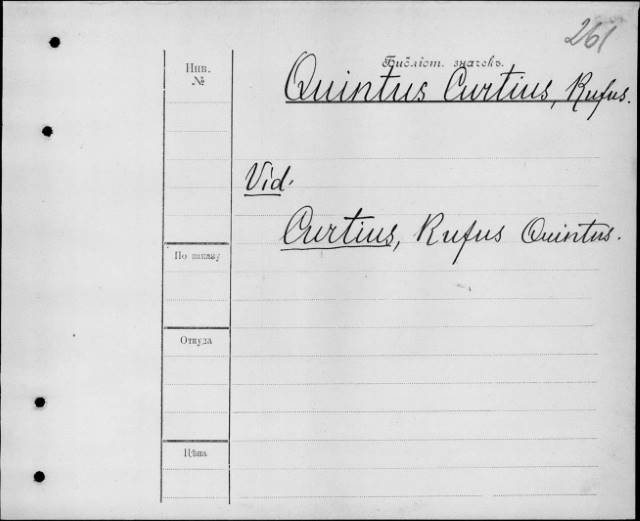 261
Библіот. значекъ.
Инв.
№
Quintus Curtius, Rufus.
Vid.
Curtius, Rufus Quintus.
По заказу
Откуда
Цѣна